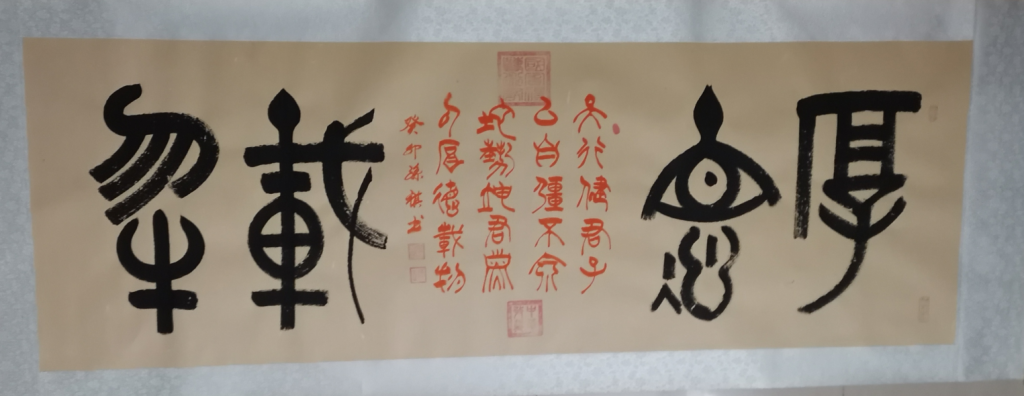 厚德載物
天行健君子
以自彊不息
地勢坤君子
以厚德載物
癸卯孫祺书